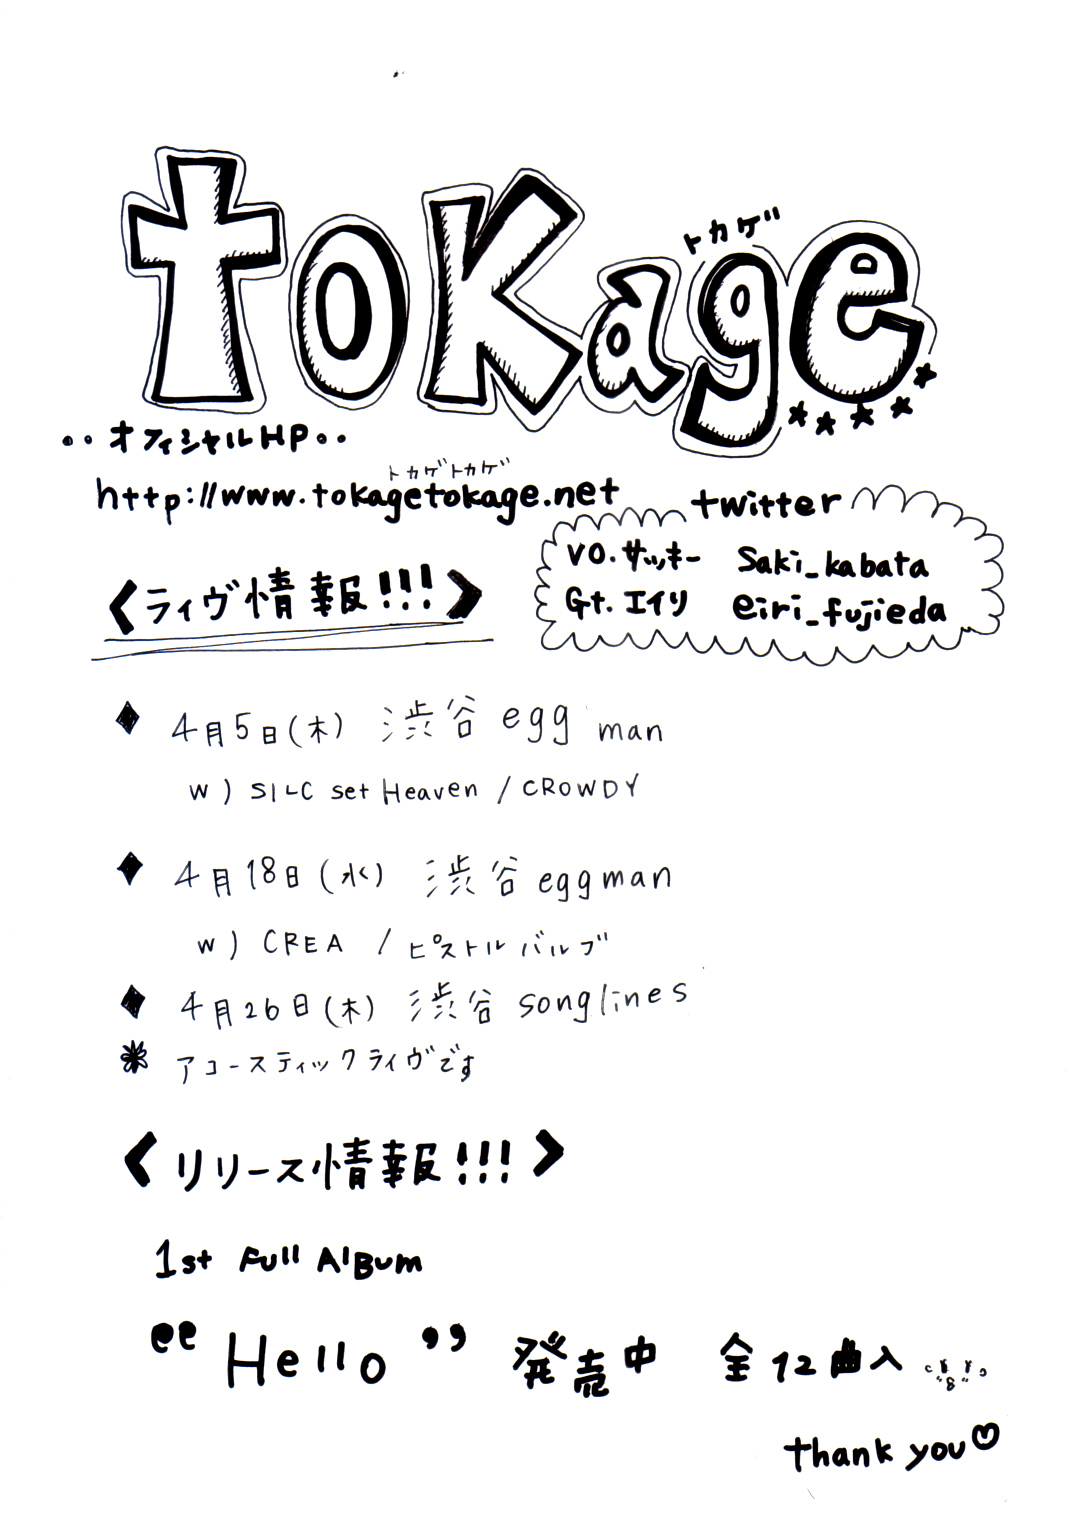 tokage
トカゲ
・・オフィシャルHP・・
トカゲトカゲ
http://www.tokagetokage.net
twitter
vo.サッキー saki_kabata
Gt.エイリ eiri_fujieda
〈ライヴ情報!!!〉
◆ 4月5日(木) 渋谷 eggman
w) SILC set Heaven / CROWDY
◆ 4月18日(水) 渋谷 eggman
w) CREA / ピストルバルブ
◆ 4月26日(木) 渋谷 songlines
✽ アコースティックライヴです
〈リリース情報!!!〉
1st Full AlBum
“Hello” 発売中 全12曲入
thank you♡